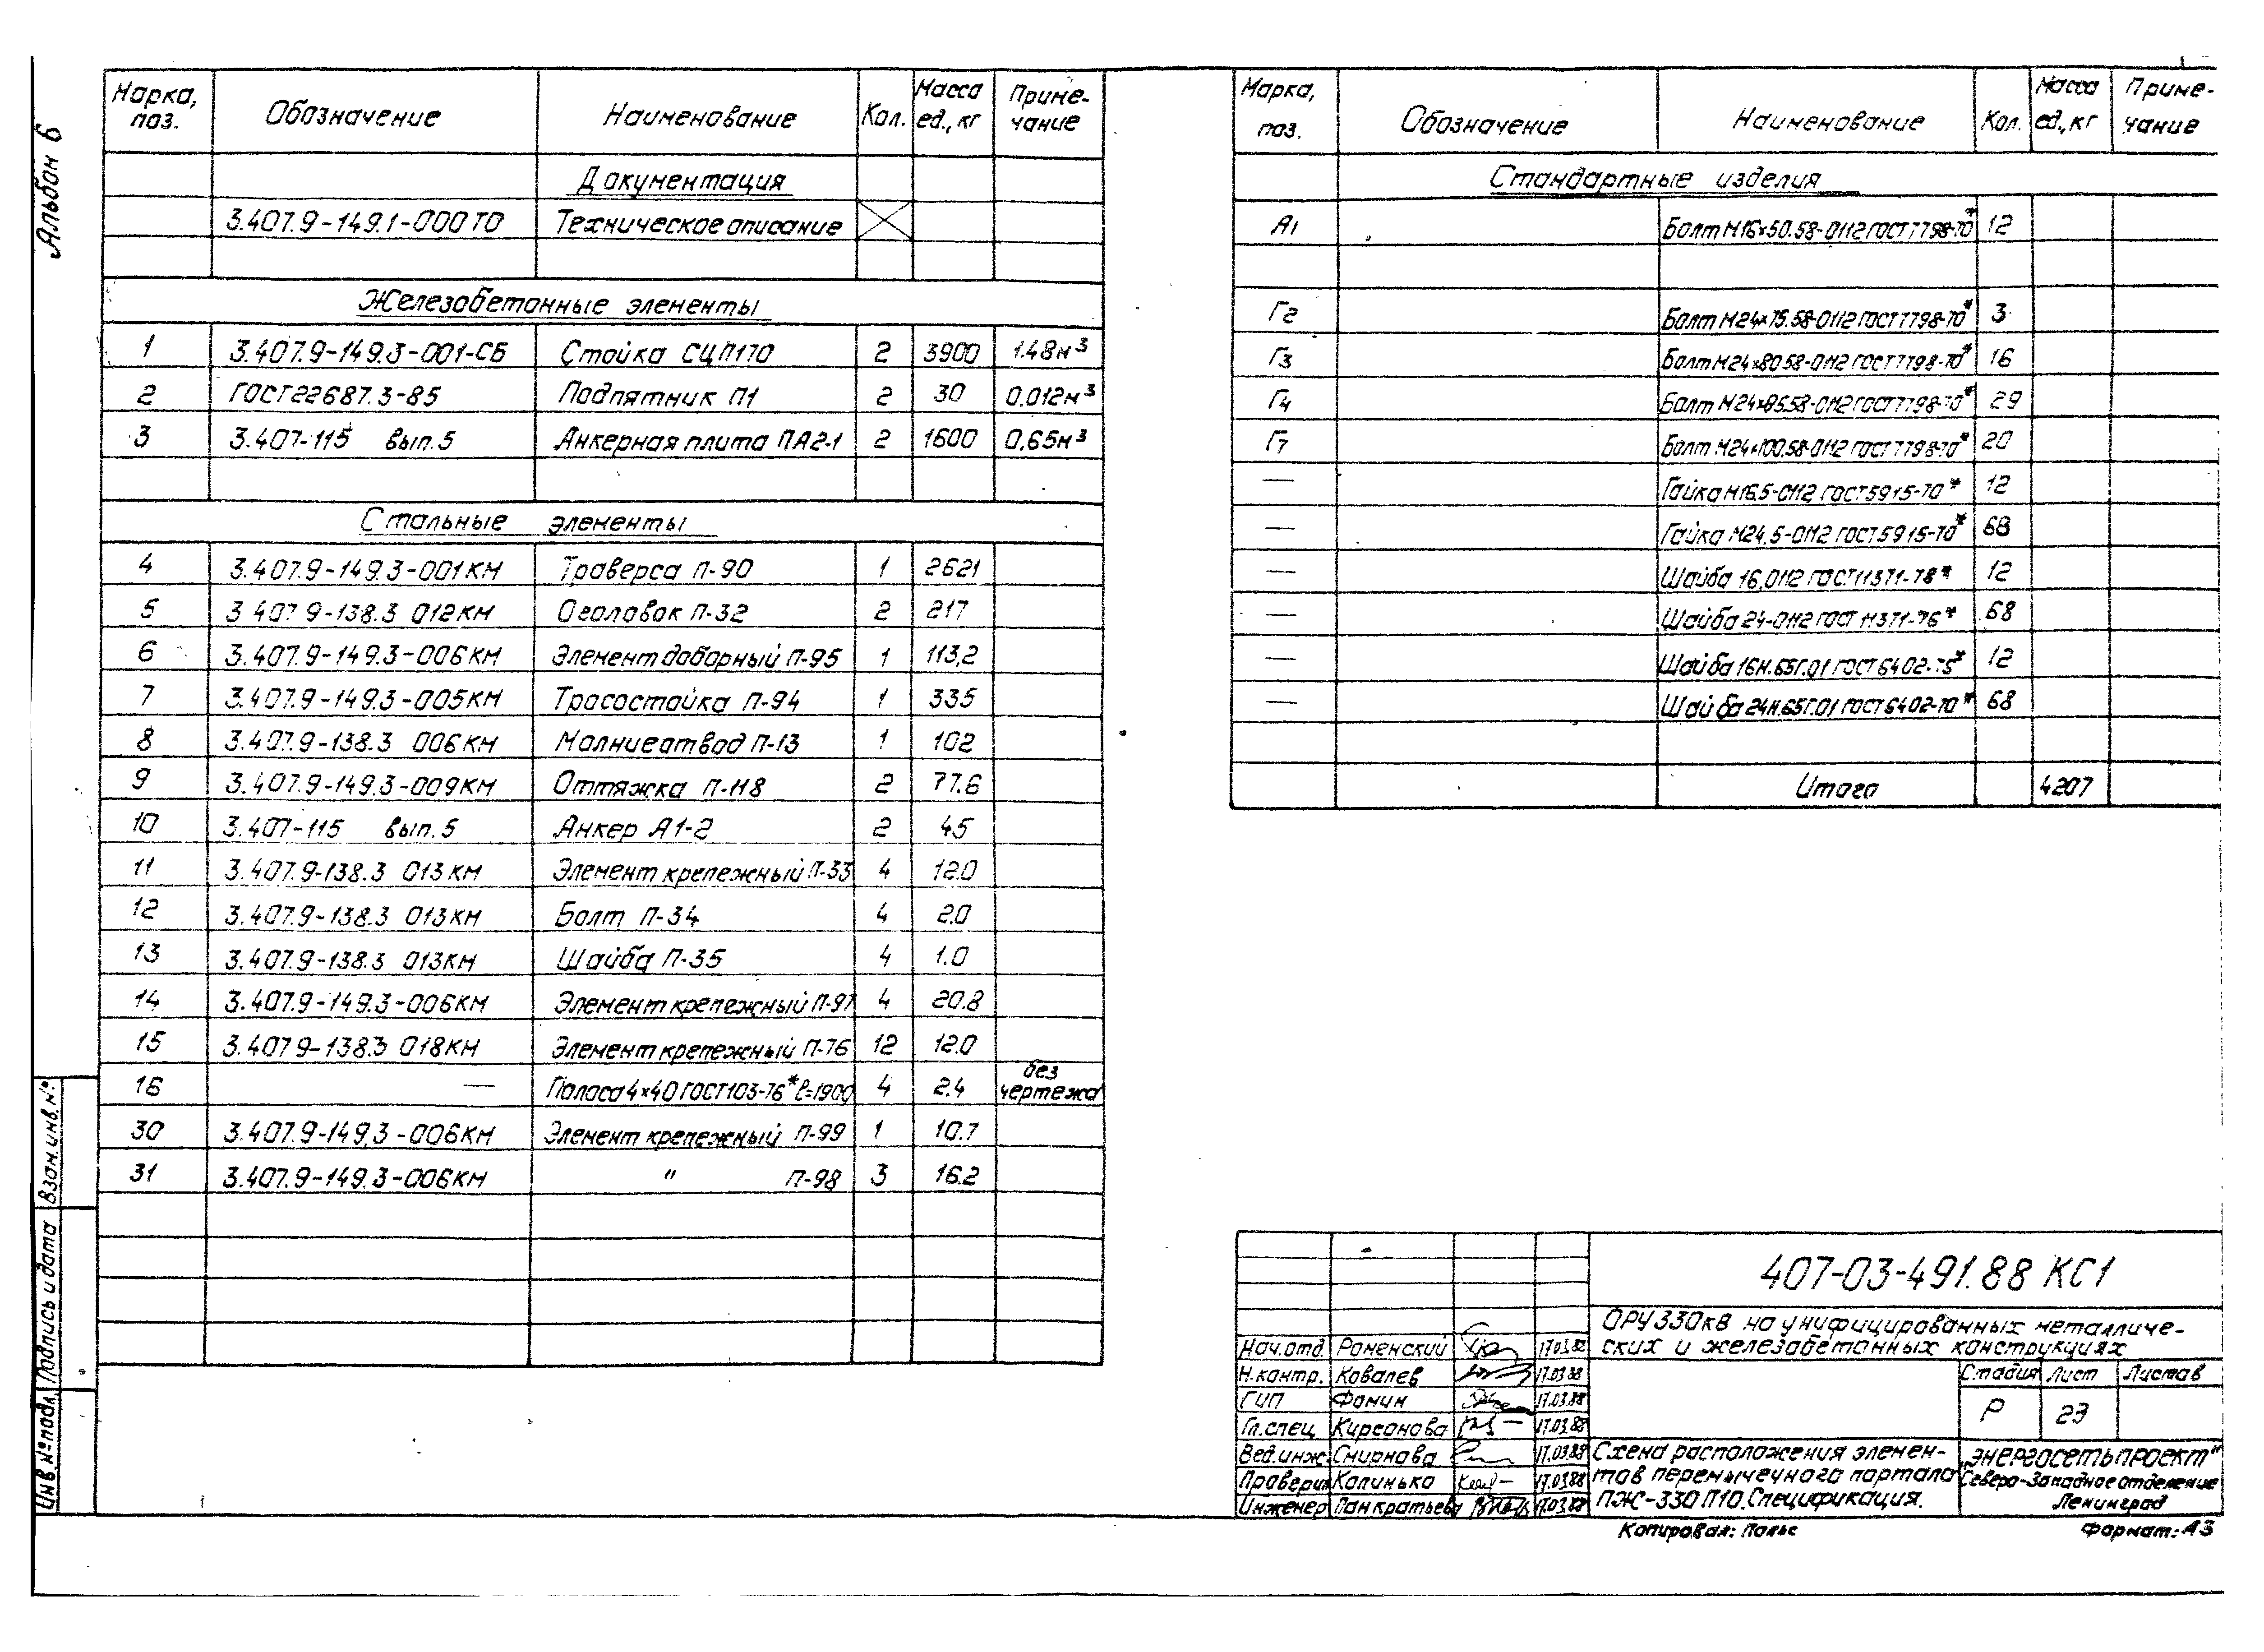 Альбом 6
Марка, поз. Обозначение Наименование Кол. Масса ед., кг Приме-чание
Документация
3.407.9-149.1-000ТО Техническое описание
Железобетонные элементы
1 3.407.9-149.3-001-СБ Стойка СЦП170 2 3900 1.48м³
2 ГОСТ22687.3-85 Подпятник П1 2 30 0.012м³
3 3.407-115 вып.5 Анкерная плита ПА2-1 2 1600 0,65м³
Стальные элементы
4 3.407.9-149.3-001КМ Траверса П-90 1 2621
5 3 407 9-138.3 012КМ Оголовок П-32 2 217
6 3.407.9-149.3-006КМ Элемент доборный П-95 1 113,2
7 3.407.9-149.3-005КМ Тросостойка П-94 1 335
8 3.407.9-138.3 006КМ Молниеотвод П-13 1 102
9 3.407.9-149.3-009КМ Оттяжка П-118 2 77.6
10 3.407-115 вып.5 Анкер А1-2 2 45
11 3.407.9-138.3 013КМ Элемент крепежный П-33 4 12.0
12 3.407.9-138.3 013КМ Болт П-34 4 2.0
13 3.407.9-138.3 013КМ Шайба П-35 4 1.0
14 3.407.9-149.3-006КМ Элемент крепежный П-97 4 20.8
15 3.407 9-138.3 018КМ Элемент крепежный П-76 12 12.0
16 — Полоса 4×40 ГОСТ103-76* ℓ=1900 4 2.4 без чертежа
30 3.407.9-149,3-006КМ Элемент крепежный П-99 1 10.7
31 3.407.9-149.3-006КМ " П-98 3 16.2
Марка, поз. Обозначение Наименование Кол. Масса ед., кг Приме-чание
Стандартные изделия
А1 Болт М16×50.58-0112 ГОСТ7798-70* 12
Г2 Болт М24×75.58-0112 ГОСТ7798-70* 3
Г3 Болт М24×80.58-0112 ГОСТ7798-70* 16
Г4 Болт М24×85.58-0112 ГОСТ7798-70* 29
Г7 Болт М24×100.58-0112 ГОСТ7798-70* 20
— Гайка М16.5-0112 ГОСТ5915-70* 12
— Гайка М24.5-0112 ГОСТ5915-70* 68
— Шайба 16.0112 ГОСТ11371-78* 12
— Шайба 24-0112 ГОСТ 11371-76* 68
— Шайба 16Н.65Г.01 ГОСТ6402-75* 12
— Шайба 24Н.65Г.01 ГОСТ6402-70* 68
Итого 4207
407-03-491.88 КС1
ОРУ 330кВ на унифицированных металличе-
ских и железобетонных конструкциях
Нач.отд. Роменский 17.03.88
Н.контр. Ковалев 17.03.88
ГИП Фомин 17.03.88
Гл.спец Кирсанова 17.03.88
Вед.инж. Смирнова 17.03.88
Проверил Калинько 17.03.88
Инженер Панкратьева 17.03.88
Стадия Лист Листов
Р 23
Схема расположения элемен-
тов перемычечного портала
ПЖ-330 П10. Спецификация.
„Энергосетьпроект"
Северо-Западное отделение
Ленинград
Копировал: Полье
Формат: А3
Инв.№подл. Подпись и дата Взам.инв.№